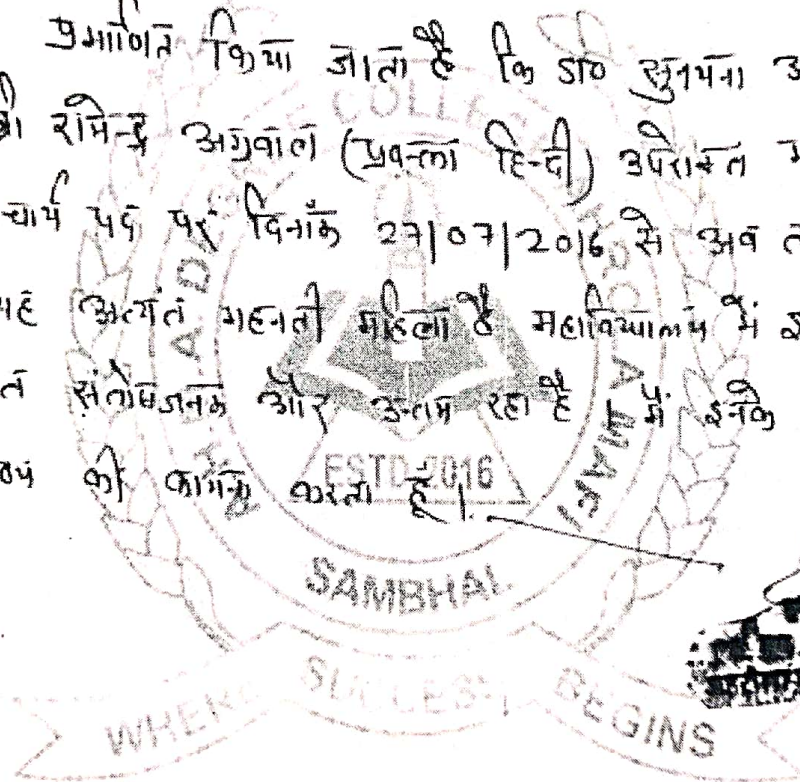 प्रमाणित किया जाता है कि डा० सुनयना अ
श्री रामेन्द्र अग्रवाल (प्रवक्ता हिन्दी) उपरोक्त म
चार्य पद पर दिनाँक 27/07/2016 से अब त
यह अत्यंत महनती महिला है महाविद्यालय में इ
त संतोषजनक और उत्तम रहा है मैं इनके
की कामना करता हूँ।
COLLEGE
ESTD-2016
SAMBHAL
WHERE SUCCESS BEGINS